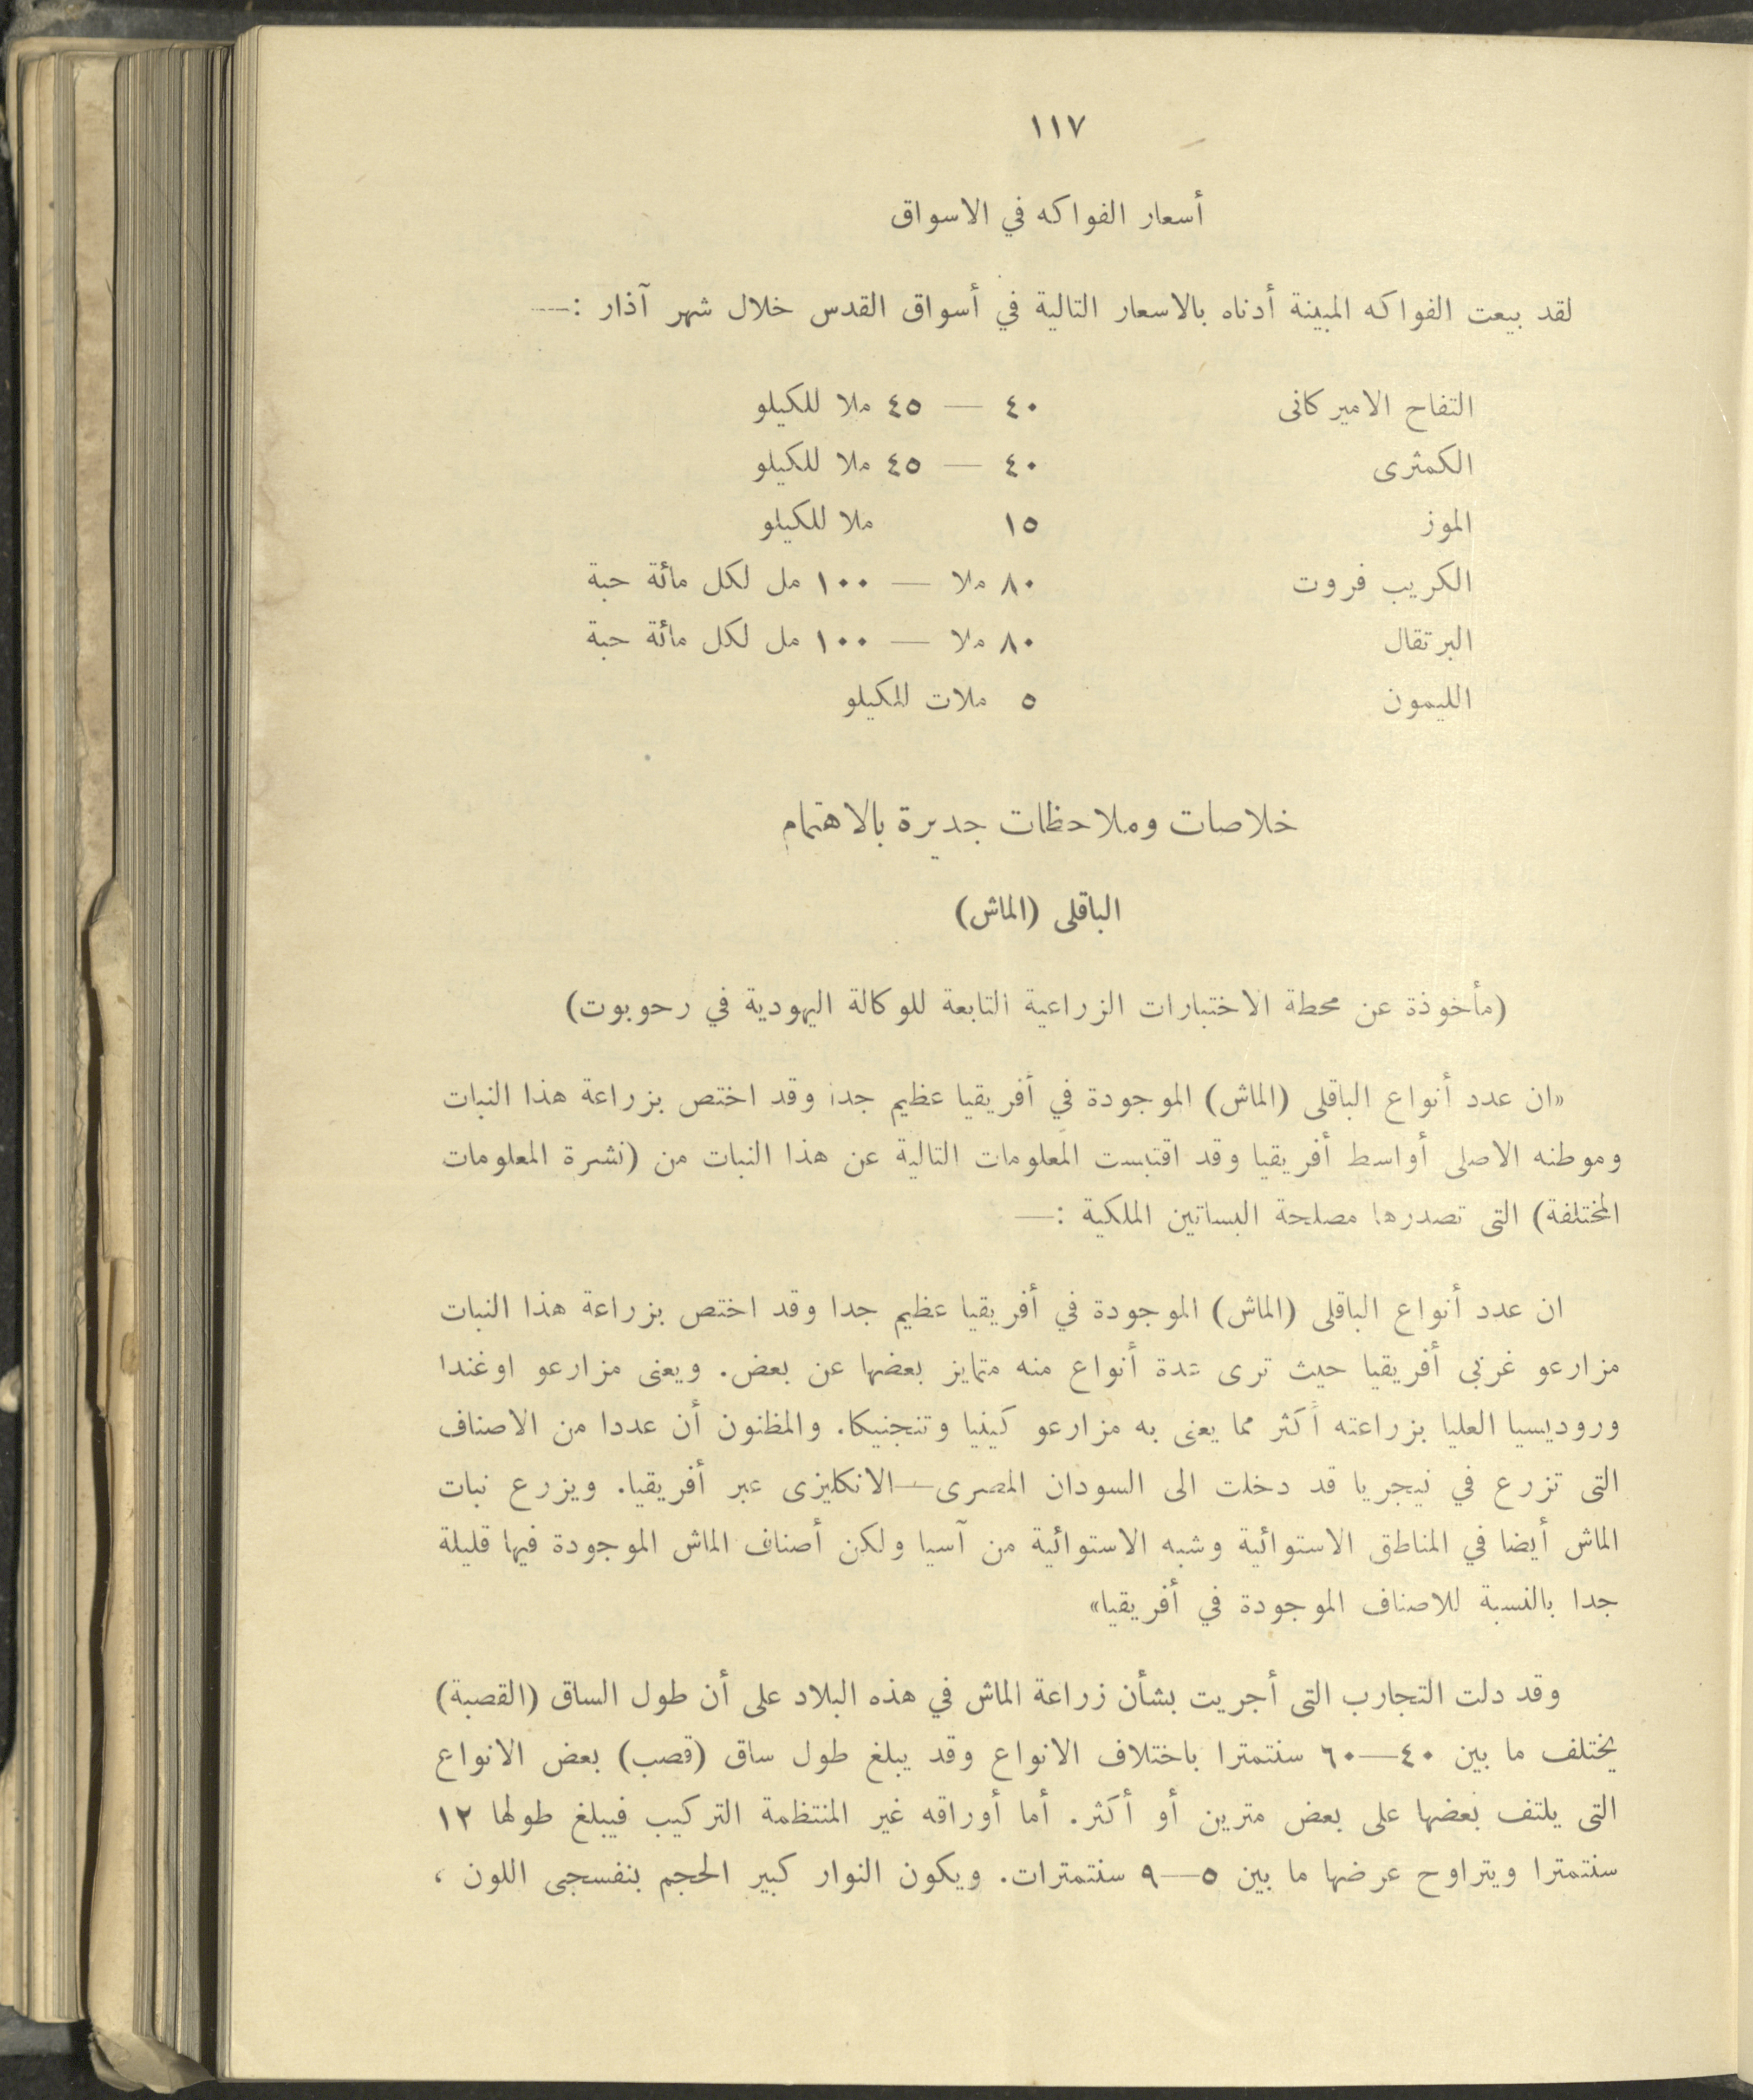 ١١٧
أسعار الفواكه في الاسواق
لقد بيعت الفواكه المبينة أدناه بالاسعار التالية في أسواق القدس خلال شهر آذار :—
التفاح الاميركانى ٤٠ — ٤٥ ملا للكيلو
الكمثرى ٤٠ — ٤٥ ملا للكيلو
الموز ١٥ ملا للكيلو
الكريب فروت ٨٠ ملا — ١٠٠ مل لكل مائة حبة
البرتقال ٨٠ ملا — ١٠٠ مل لكل مائة حبة
الليمون ٥ ملات للكيلو
خلاصات وملاحظات جديرة بالاهتمام
الباقلى (الماش)
(مأخوذة عن محطة الاختبارات الزراعية التابعة للوكالة اليهودية في رحوبوت)
«ان عدد أنواع الباقلى (الماش) الموجودة في أفريقيا عظيم جدا وقد اختص بزراعة هذا النبات
وموطنه الاصلى أواسط أفريقيا وقد اقتبست المعلومات التالية عن هذا النبات من (نشرة المعلومات
المختلفة) التى تصدرها مصلحة البساتين الملكية :—
ان عدد أنواع الباقلى (الماش) الموجودة في أفريقيا عظيم جدا وقد اختص بزراعة هذا النبات
مزارعو غربى أفريقيا حيث ترى عدة أنواع منه متمايز بعضها عن بعض. ويعنى مزارعو اوغندا
وروديسيا العليا بزراعته أكثر مما يعنى به مزارعو كينيا وتنجنيكا. والمظنون أن عددا من الاصناف
التى تزرع في نيجريا قد دخلت الى السودان المصرى—الانكليزى عبر أفريقيا. ويزرع نبات
الماش أيضا في المناطق الاستوائية وشبه الاستوائية من آسيا ولكن أصناف الماش الموجودة فيها قليلة
جدا بالنسبة للاصناف الموجودة في أفريقيا»
وقد دلت التجارب التى أجريت بشأن زراعة الماش في هذه البلاد على أن طول الساق (القصبة)
يختلف ما بين ٤٠—٦٠ سنتمترا باختلاف الانواع وقد يبلغ طول ساق (قصب) بعض الانواع
التى يلتف بعضها على بعض مترين أو أكثر. أما أوراقه غير المنتظمة التركيب فيبلغ طولها ١٢
سنتمترا ويتراوح عرضها ما بين ٥—٩ سنتمترات. ويكون النوار كبير الحجم بنفسجى اللون ،